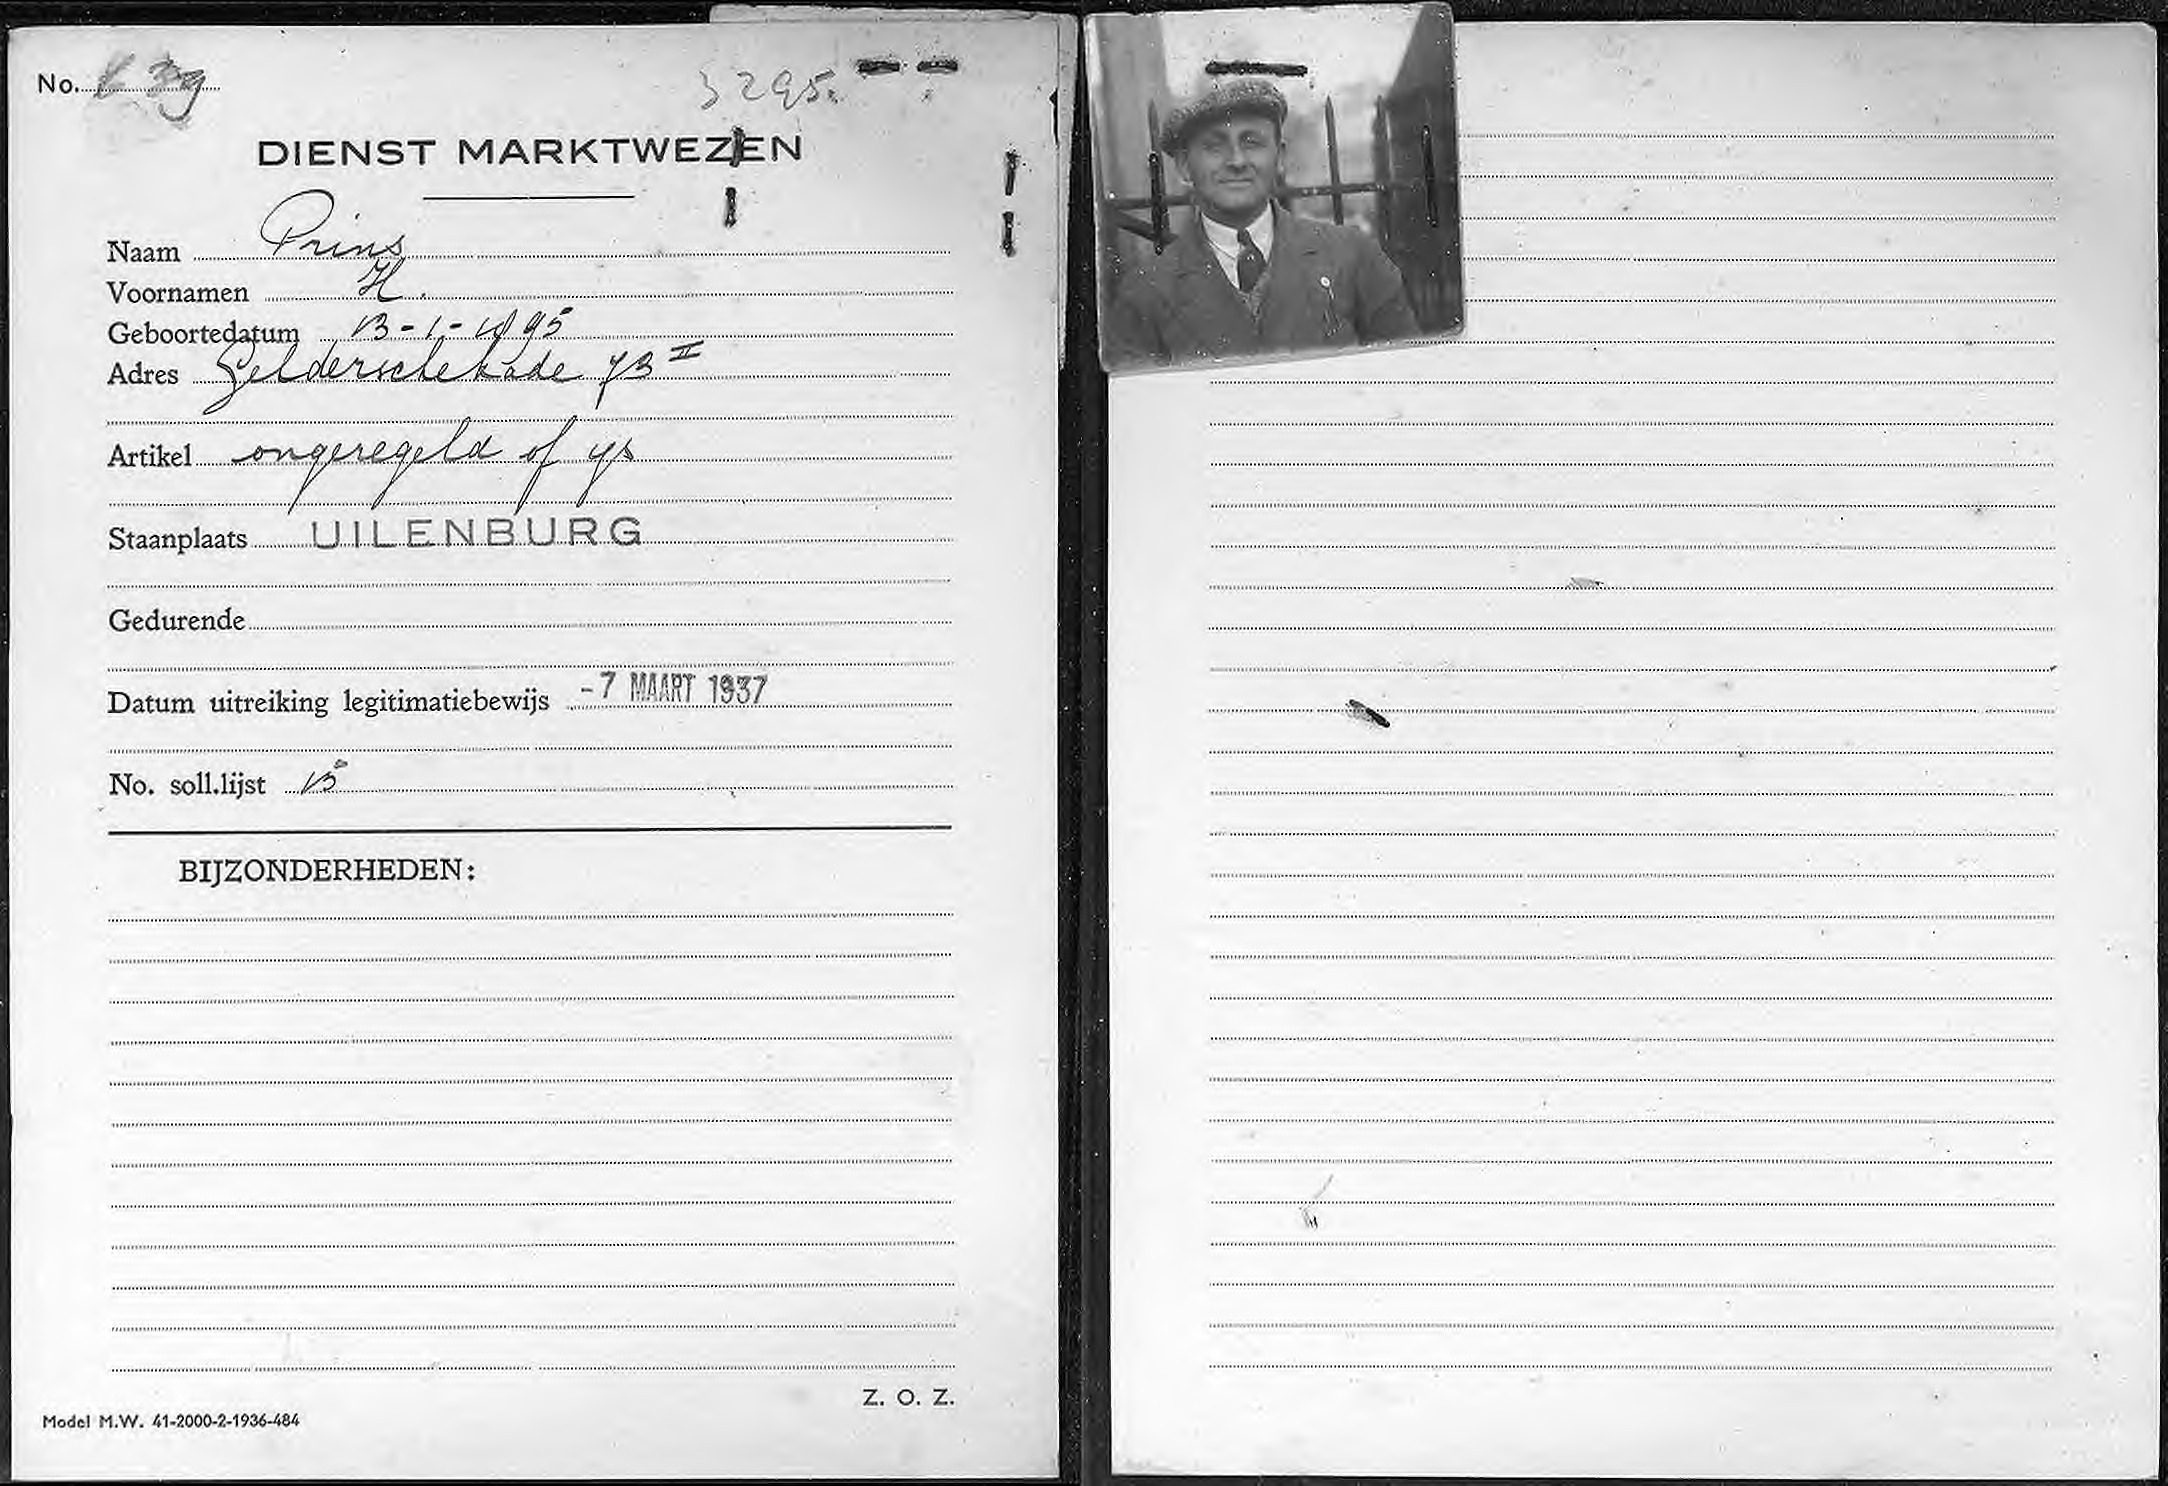 No. 39
3295.
DIENST MARKTWEZEN
Naam Prins
Voornamen H.
Geboortedatum 13-1-1895
Adres Gelderschekade 73 II
Artikel ongeregeld of ys
Staanplaats UILENBURG
Gedurende
Datum uitreiking legitimatiebewijs -7 MAART 1937
No. soll.lijst 13
BIJZONDERHEDEN:
Z. O. Z.
Model M.W. 41-2000-2-1936-484